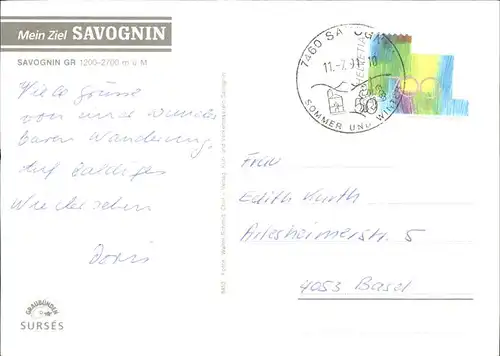 Mein Ziel SAVOGNIN
SAVOGNIN GR 1200-2700 m ü M
Viele Grüsse
von und wunder
baren Wanderung
Auf baldiges
Wiedersehen
Doris
GRAUBÜNDEN
SURSÉS
7460 SA
11.-7. 91-10
SOMMER UND
HELVETIA
50
Frau
Edith Kurth
Arlesheimerstr. 5
4053 Basel